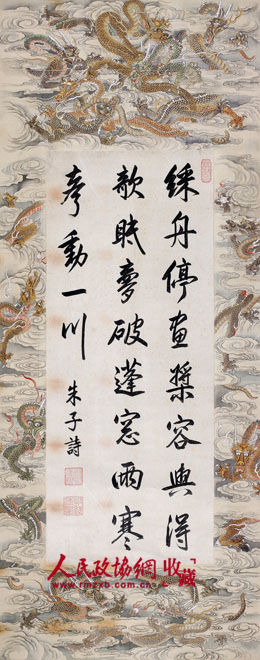 綵舟停畫槳容與得
欹眠夢破蓬窓雨寒
聲動一川
朱子詩
人民政協網·收藏
www.rmzxb.com.cn